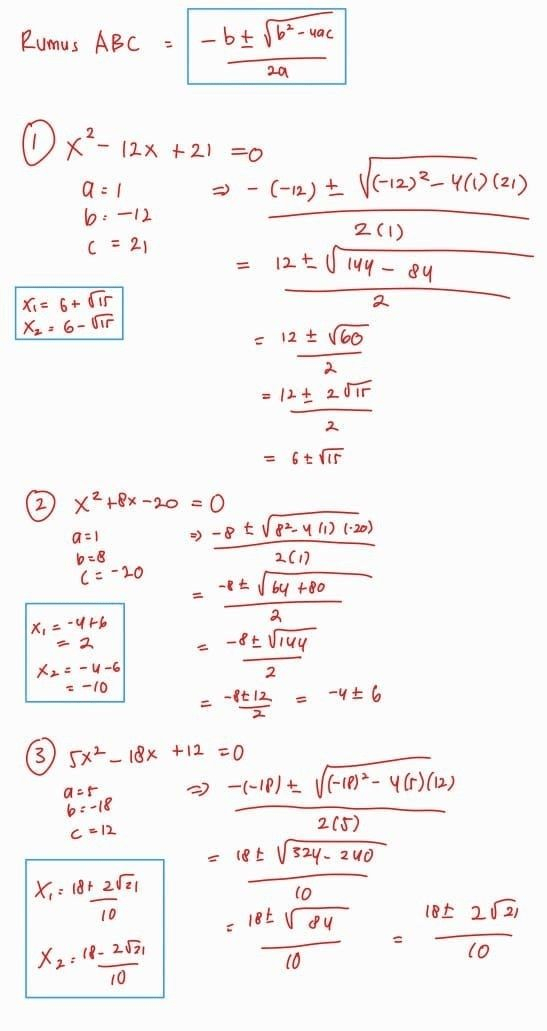 Rumus ABC = (-b ± √(b² - 4ac)) / 2a
① x² - 12x + 21 = 0
a = 1
b = -12
c = 21
⇒ (-(-12) ± √((-12)² - 4(1)(21))) / 2(1)
= (12 ± √(144 - 84)) / 2
= (12 ± √60) / 2
= (12 ± 2√15) / 2
= 6 ± √15
x₁ = 6 + √15
x₂ = 6 - √15
② x² + 8x - 20 = 0
a = 1
b = 8
c = -20
⇒ (-8 ± √(8² - 4(1)(-20))) / 2(1)
= (-8 ± √(64 + 80)) / 2
= (-8 ± √144) / 2
= (-8 ± 12) / 2 = -4 ± 6
x₁ = -4 + 6
= 2
x₂ = -4 - 6
= -10
③ 5x² - 18x + 12 = 0
a = 5
b = -18
c = 12
⇒ (-(-18) ± √((-18)² - 4(5)(12))) / 2(5)
= (18 ± √(324 - 240)) / 10
= (18 ± √84) / 10 = (18 ± 2√21) / 10
x₁ = (18 + 2√21) / 10
x₂ = (18 - 2√21) / 10